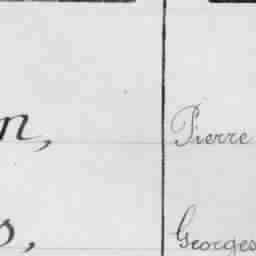 n, Pierre
s, Georges